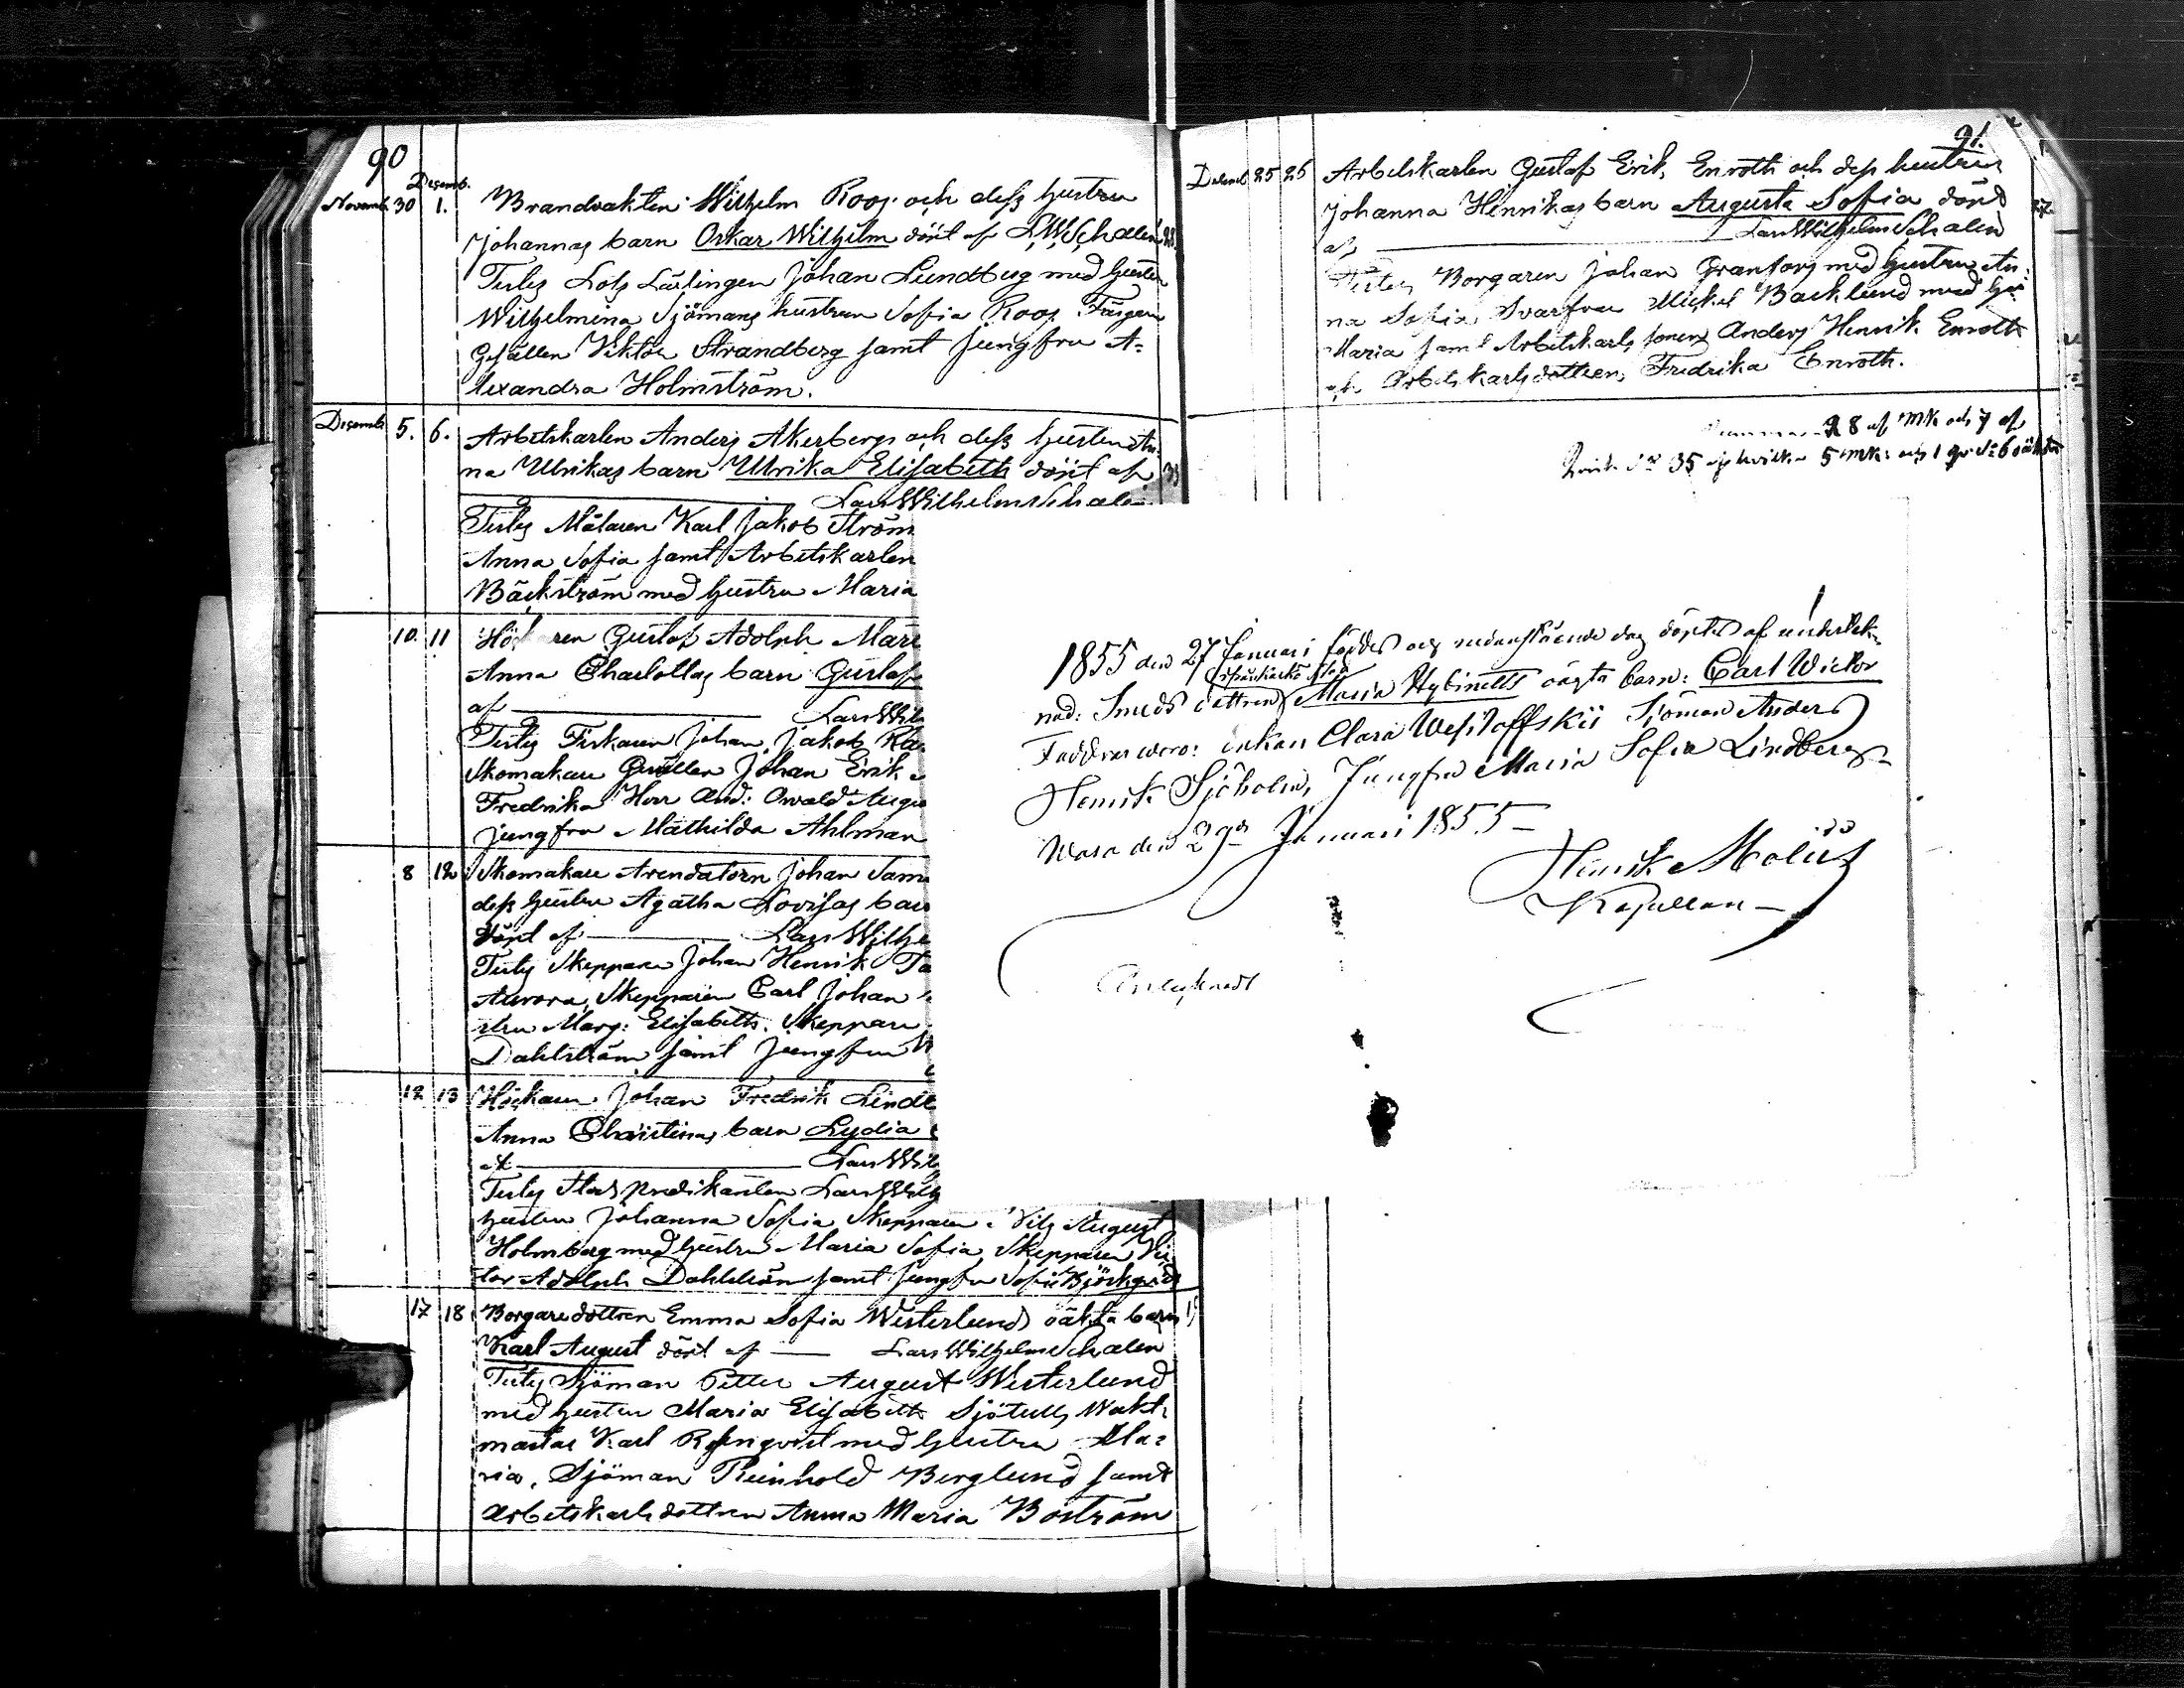 90
Decemb.
Novemb. 30 1. Brandvakten Wilhelm Roos och dess hustru
Johannas barn Oskar Wilhelm döpt af LWSchalén 28.
Testes Lots Lärlingen Johan Lundberg med hustru
Wilhelmina Sjömans hustrun Sofia Roos Färgare
Gesällen Viktor Strandberg samt Jungfru A-
lexandra Holmström.
Decemb 5. 6. Arbetskarlen Anders Åkerbergs och dess hustru An-
na Ulrikas barn Ulrika Elisabeth döpt af
Lars Wilhelm Schalén
Testes Målaren Karl Jakob Ström
Anna Sofia samt Arbetskarlen
Bäckström med hustru Maria
10. 11 Gustaf Adolph
Anna Charlottas barn Gustaf
af Lars Wil
Testes Fiskaren Johan Jakob
Skomakare Gesällen Johan Erik
Fredrika Herr And: Oswald
Jungfru Mathilda Ahlman
8 12 Skomakare Arendatorn Johan Sam
dess hustru Agatha Lovisas bar
döpt af Lars Wilhe
Testes Skepparen Johan Henrik
Aurora, Skepparen Carl Johan
stru Marg: Elisabeth. Skeppare
Dahlström samt Jungfru
12 13 Hökaren Johan Fredrik Lind
Anna Christinas barn Lydia
af Lars Wil
Testes Stads predikanten Lars Wilh
hustru Johanna Sofia Skepparen Nils August
Holmberg med hustru Maria Sofia, Skepparen Vic
tor Adolph Dahlström samt Jungfru Sofie Björkqvist
17 18 Borgaredottren Emma Sofia Westerlunds oäkta barn
Karl August döpt af Lars Wilhelm Schalén
Testes Sjöman Petter August Westerlund
med hustru Maria Elisabeth Sjötulls Wakt-
mästar Karl Rosenqvist med hustru Ma-
ria, Sjöman Reinhold Berglund samt
Arbetskarls dottren Anna Maria Boström
91.
Decemb 25 26 Arbetskarlen Gustaf Erik Enroth och dess hustru
Johanna Henrikas barn Augusta Sofia döpt 27.
af Lars Wilhelm Schalén
Testes Borgaren Johan Granfors med hustru An-
na Sofia Svarfvare Mickel Backlund med hu
Maria samt Arbetskarls sonen Anders Henrik Enroth
och Arbetskarlsdottren Fredrika Enroth.
28 af MK och 7 af
35 af hvilka 5 MK: och 1 qv: oäkta
1855 den 27 Januari föddes och nedanstående dag döptes af underteck-
nad: Smeds dottren Maria Hybinetts oägta barn: Carl Victor
Faddrar woro: Enkan Clara Wessloffskii Sjöman Anders
Henrik Sjöholm, Jungfru Maria Sofia Lindberg
Wasa den 29de Januari 1855
Henrik Molius
Kapellan
Antecknadt